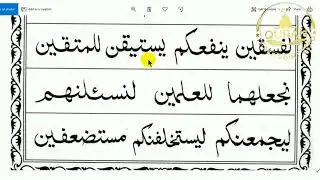 لفسقين ينفعكم يستيقن للمتقين
نجعلهما للعلمين لنسئلنهم
ليجمعنكم ليستخلفنكم مستضعفين